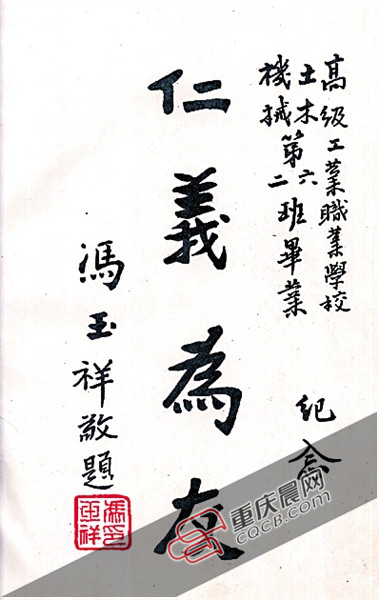 高級工業職業學校
土木
機械
第
六
二
班畢業
紀念
仁義為友
馮玉祥敬題
馮印
玉祥
重庆晨网
CQCB.COM